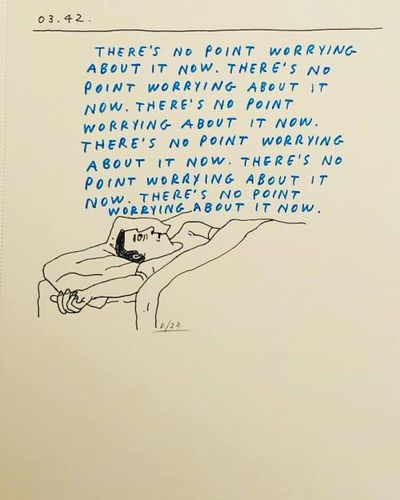 03.42.
THERE'S NO POINT WORRYING
ABOUT IT NOW. THERE'S NO
POINT WORRYING ABOUT IT
NOW. THERE'S NO POINT
WORRYING ABOUT IT NOW.
THERE'S NO POINT WORRYING
ABOUT IT NOW. THERE'S NO
POINT WORRYING ABOUT IT
NOW. THERE'S NO POINT
WORRYING ABOUT IT NOW.